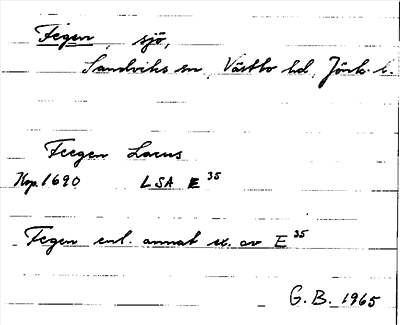 Fegen, sjö,
Sandviks sn, Västbo hd, Jönk. l.
Feegen Lacus
Kop. 1690 LSA E 35
Fegen enl. annat ex. av E 35
G. B. 1965